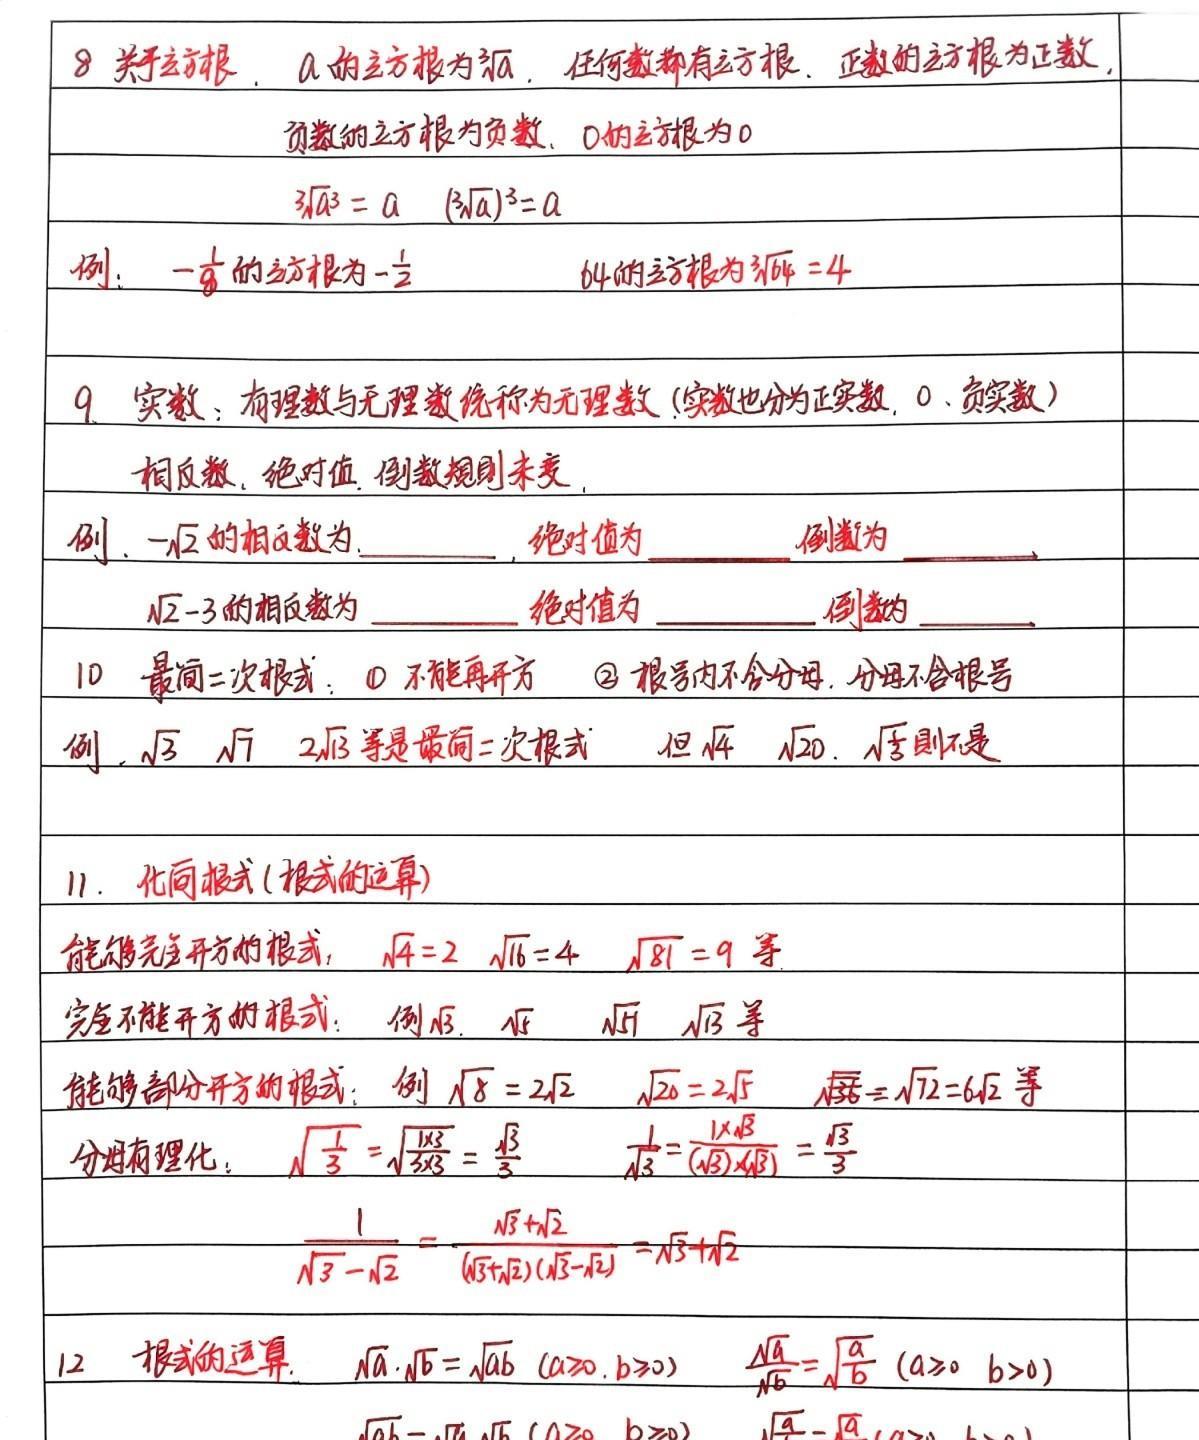 8 关于立方根. a的立方根为∛a. 任何数都有立方根. 正数的立方根为正数.
负数的立方根为负数. 0的立方根为0
∛a³ = a (∛a)³ = a
例: -1/8的立方根为-1/2 64的立方根为∛64 = 4
9. 实数: 有理数与无理数统称为无理数 (实数也分为正实数. 0、负实数)
相反数. 绝对值. 倒数规则未变.
例. -√2的相反数为 ______ , 绝对值为 ______ 倒数为 ______
√2-3的相反数为 ______ 绝对值为 ______ 倒数为 ______
10 最简二次根式: ① 不能再开方 ② 根号内不含分母. 分母不含根号
例. √3 √7 2√13 等是最简二次根式 但√4 √20. 则不是
11. 化简根式(根式的运算)
能够完全开方的根式: √4=2 √16=4 √81=9 等
完全不能开方的根式: 例√3. √5 √51 √13 等
能够部分开方的根式: 例 √8 = 2√2 √20 = 2√5 = √72 = 6√2 等
分母有理化: √(1/3) = √((1×3)/(3×3)) = √3/3 1/√3 = (1×√3)/((√3)×(√3)) = √3/3
1/(√3-√2) = (√3+√2)/((√3+√2)(√3-√2)) = √3+√2
12 根式的运算. √a·√b = √ab (a≥0. b≥0) √a/√b = √(a/b) (a≥0 b>0)
√ab = √a √b (a≥0 b≥0)